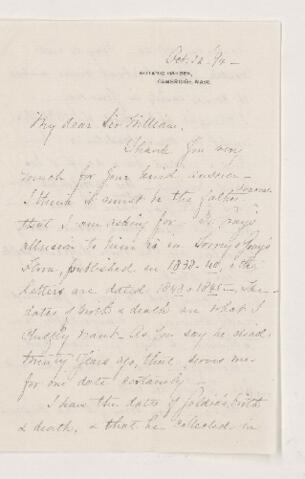 Oct. 12. '94 –
BOTANIC GARDEN,
CAMBRIDGE, MASS.
My dear Sir William,
Thank you very
much for your kind answer –
I think it must be the father
that I am asking for – Dr. Gray's
allusion to him is in Torrey & Gray's
Flora, published in 1838-40, & the
letters are dated – The
dates of birth & death are what I
chiefly want – As you say he died
twenty years ago, that serves me
for one date certainly –
I have the dates of birth
& death, & that he collected in